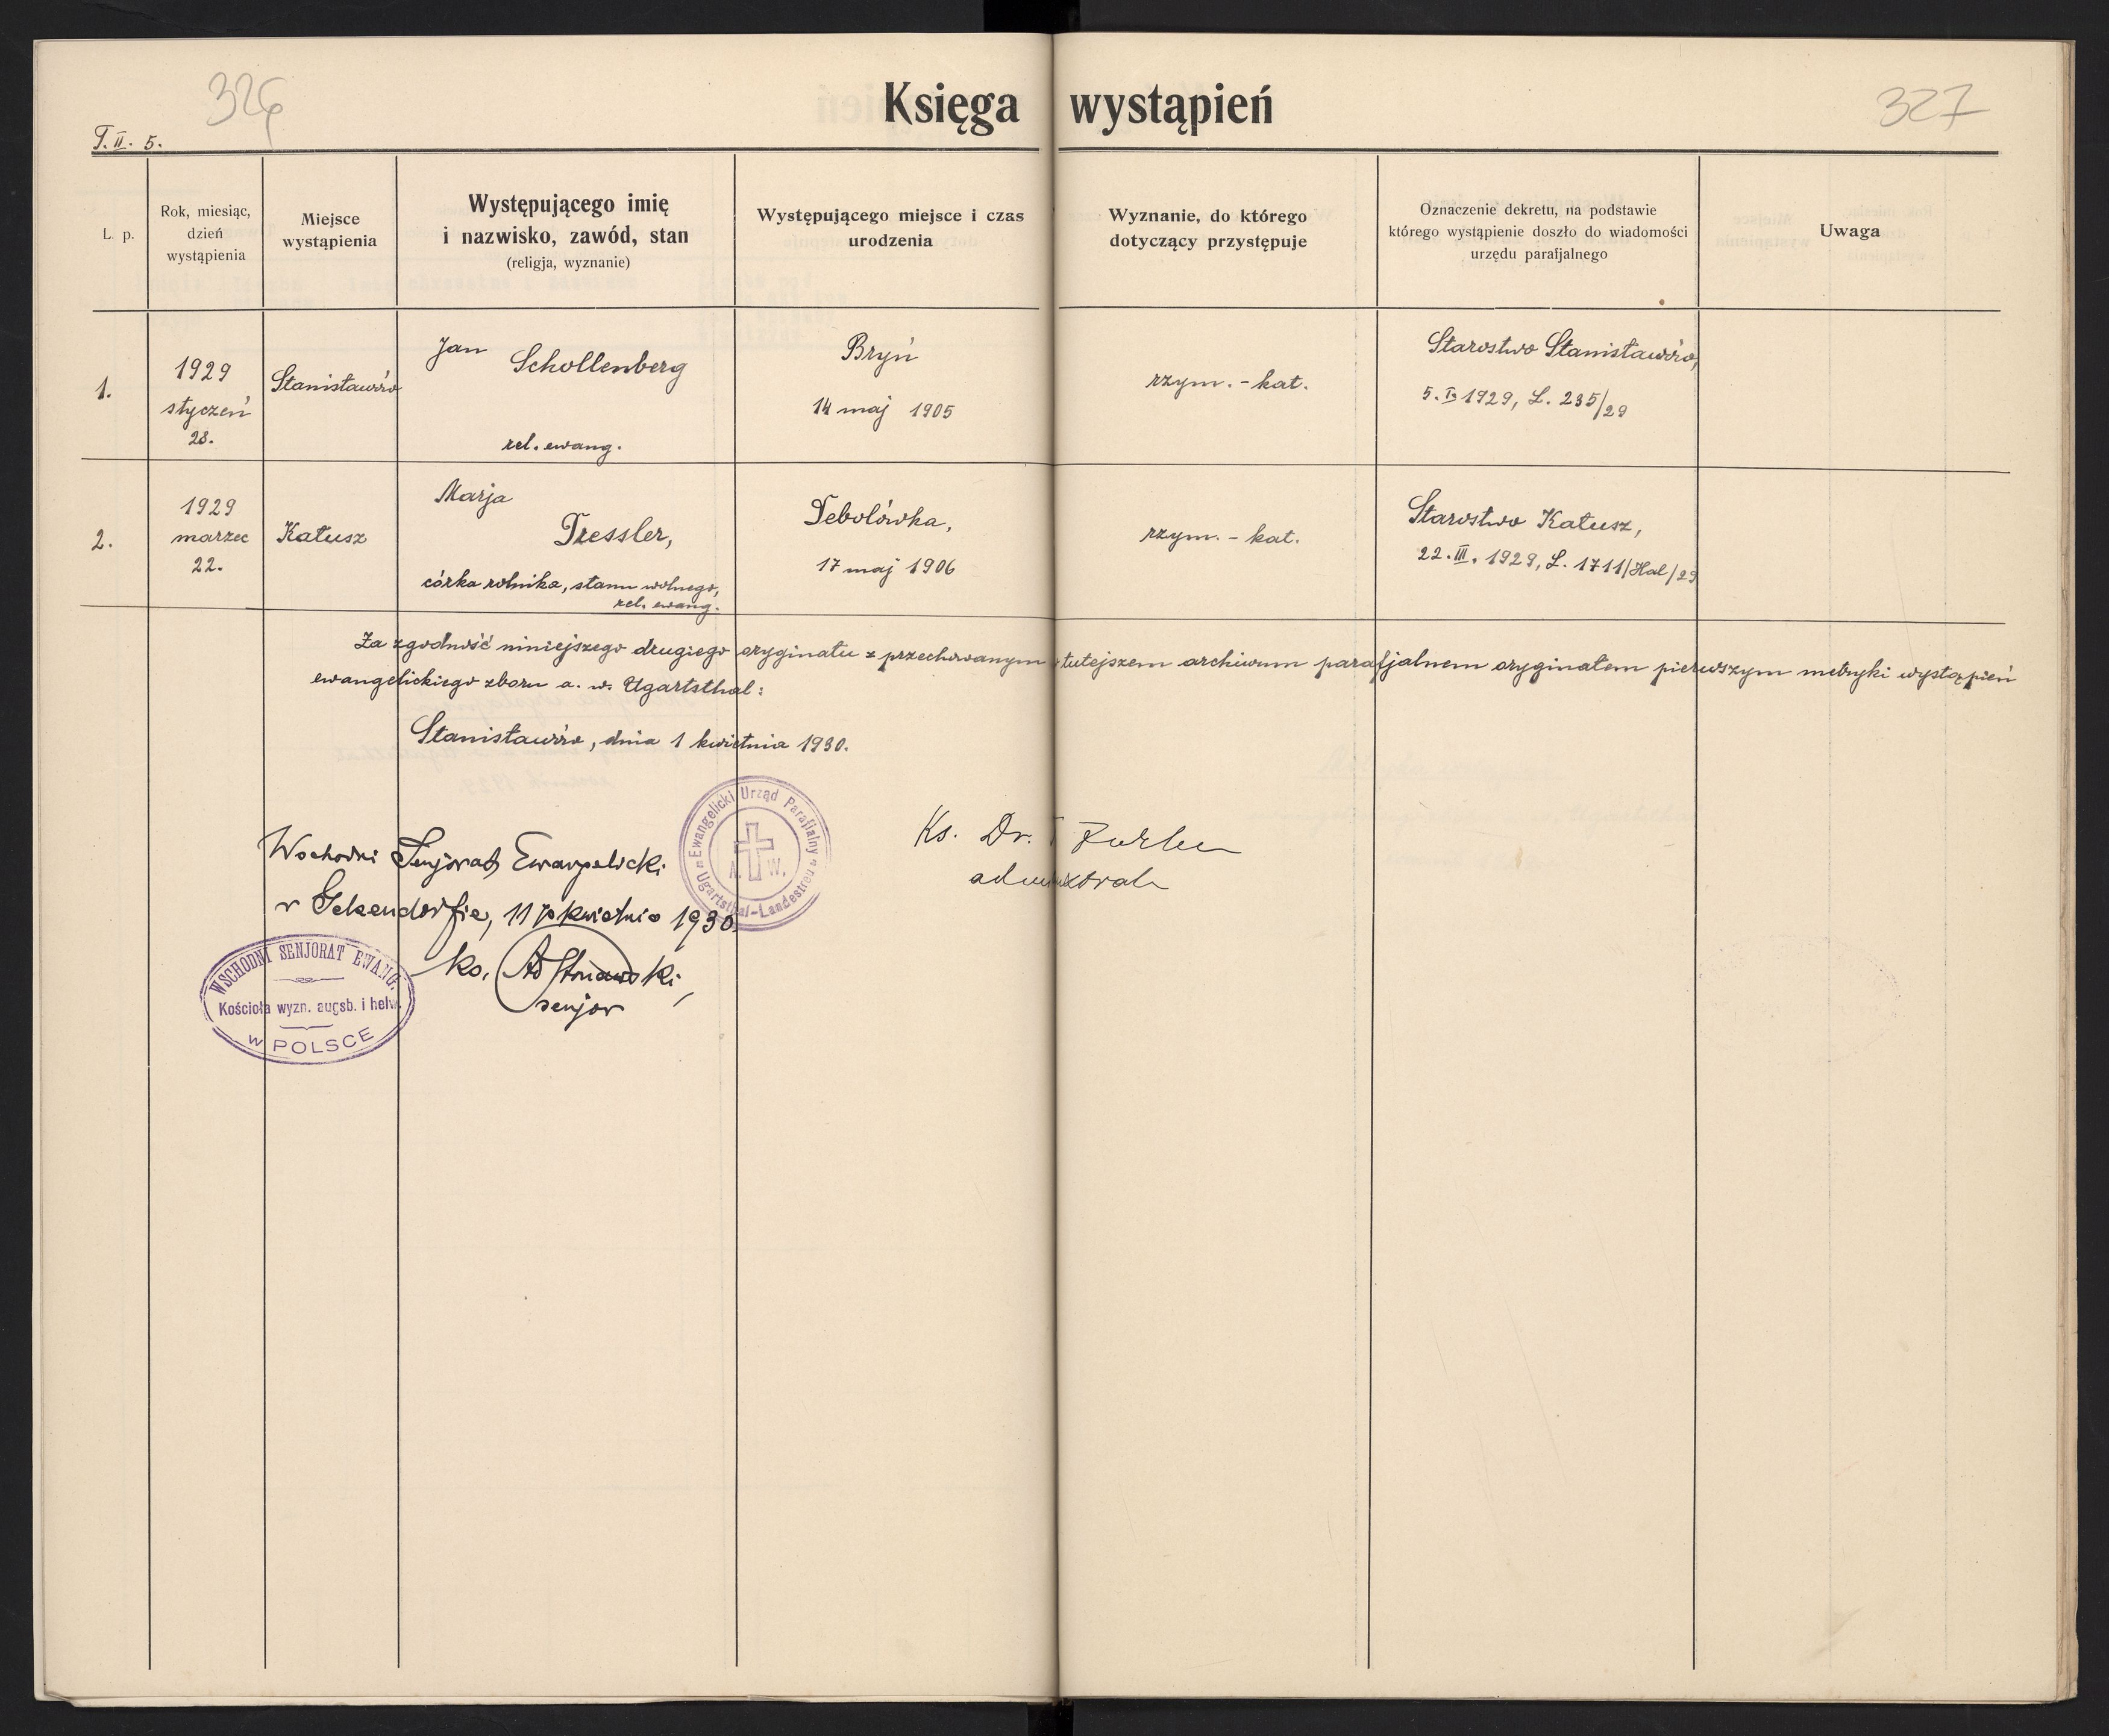 326
327
T. II. 5.
Księga wystąpień
L. p.
Rok, miesiąc,
dzień
wystąpienia
Miejsce
wystąpienia
Występującego imię
i nazwisko, zawód, stan
(religja, wyznanie)
Występującego miejsce i czas
urodzenia
Wyznanie, do którego
dotyczący przystępuje
Oznaczenie dekretu, na podstawie
którego wystąpienie doszło do wiadomości
urzędu parafjalnego
Uwaga
1.
1929
styczeń
28.
Stanisławów
Jan
Schollenberg
rel. ewang.
Bryń
14 maj 1905
rzym.-kat.
Starostwo Stanisławów,
5. I. 1929, L. 235/29
2.
1929
marzec
22.
Kałusz
Marja
Tressler,
córka rolnika, stanu wolnego,
rel. ewang.
Debolówka,
17 maj 1906
rzym.-kat.
Starostwo Kałusz,
22. III. 1929, L. 1711/Hal/29
Za zgodność niniejszego drugiego oryginału z przechowanym w tutejszem archiwum parafjalnem oryginałem pierwszym metryki wystąpień
ewangelickiego zboru a. w. Ugartsthal:
Stanisławów, dnia 1 kwietnia 1930.
Ewangelicki Urząd Parafjalny
A. W.
Ugartsthal-Landestreu
Ks. Dr.
Wschodni Senjorat Ewangelicki
w Gelsendorfie, 11 kwietnia 1930.
ks.
senjor
WSCHODNI SENJORAT EWANG.
Kościoła wyzn. augsb. i helw.
w POLSCE